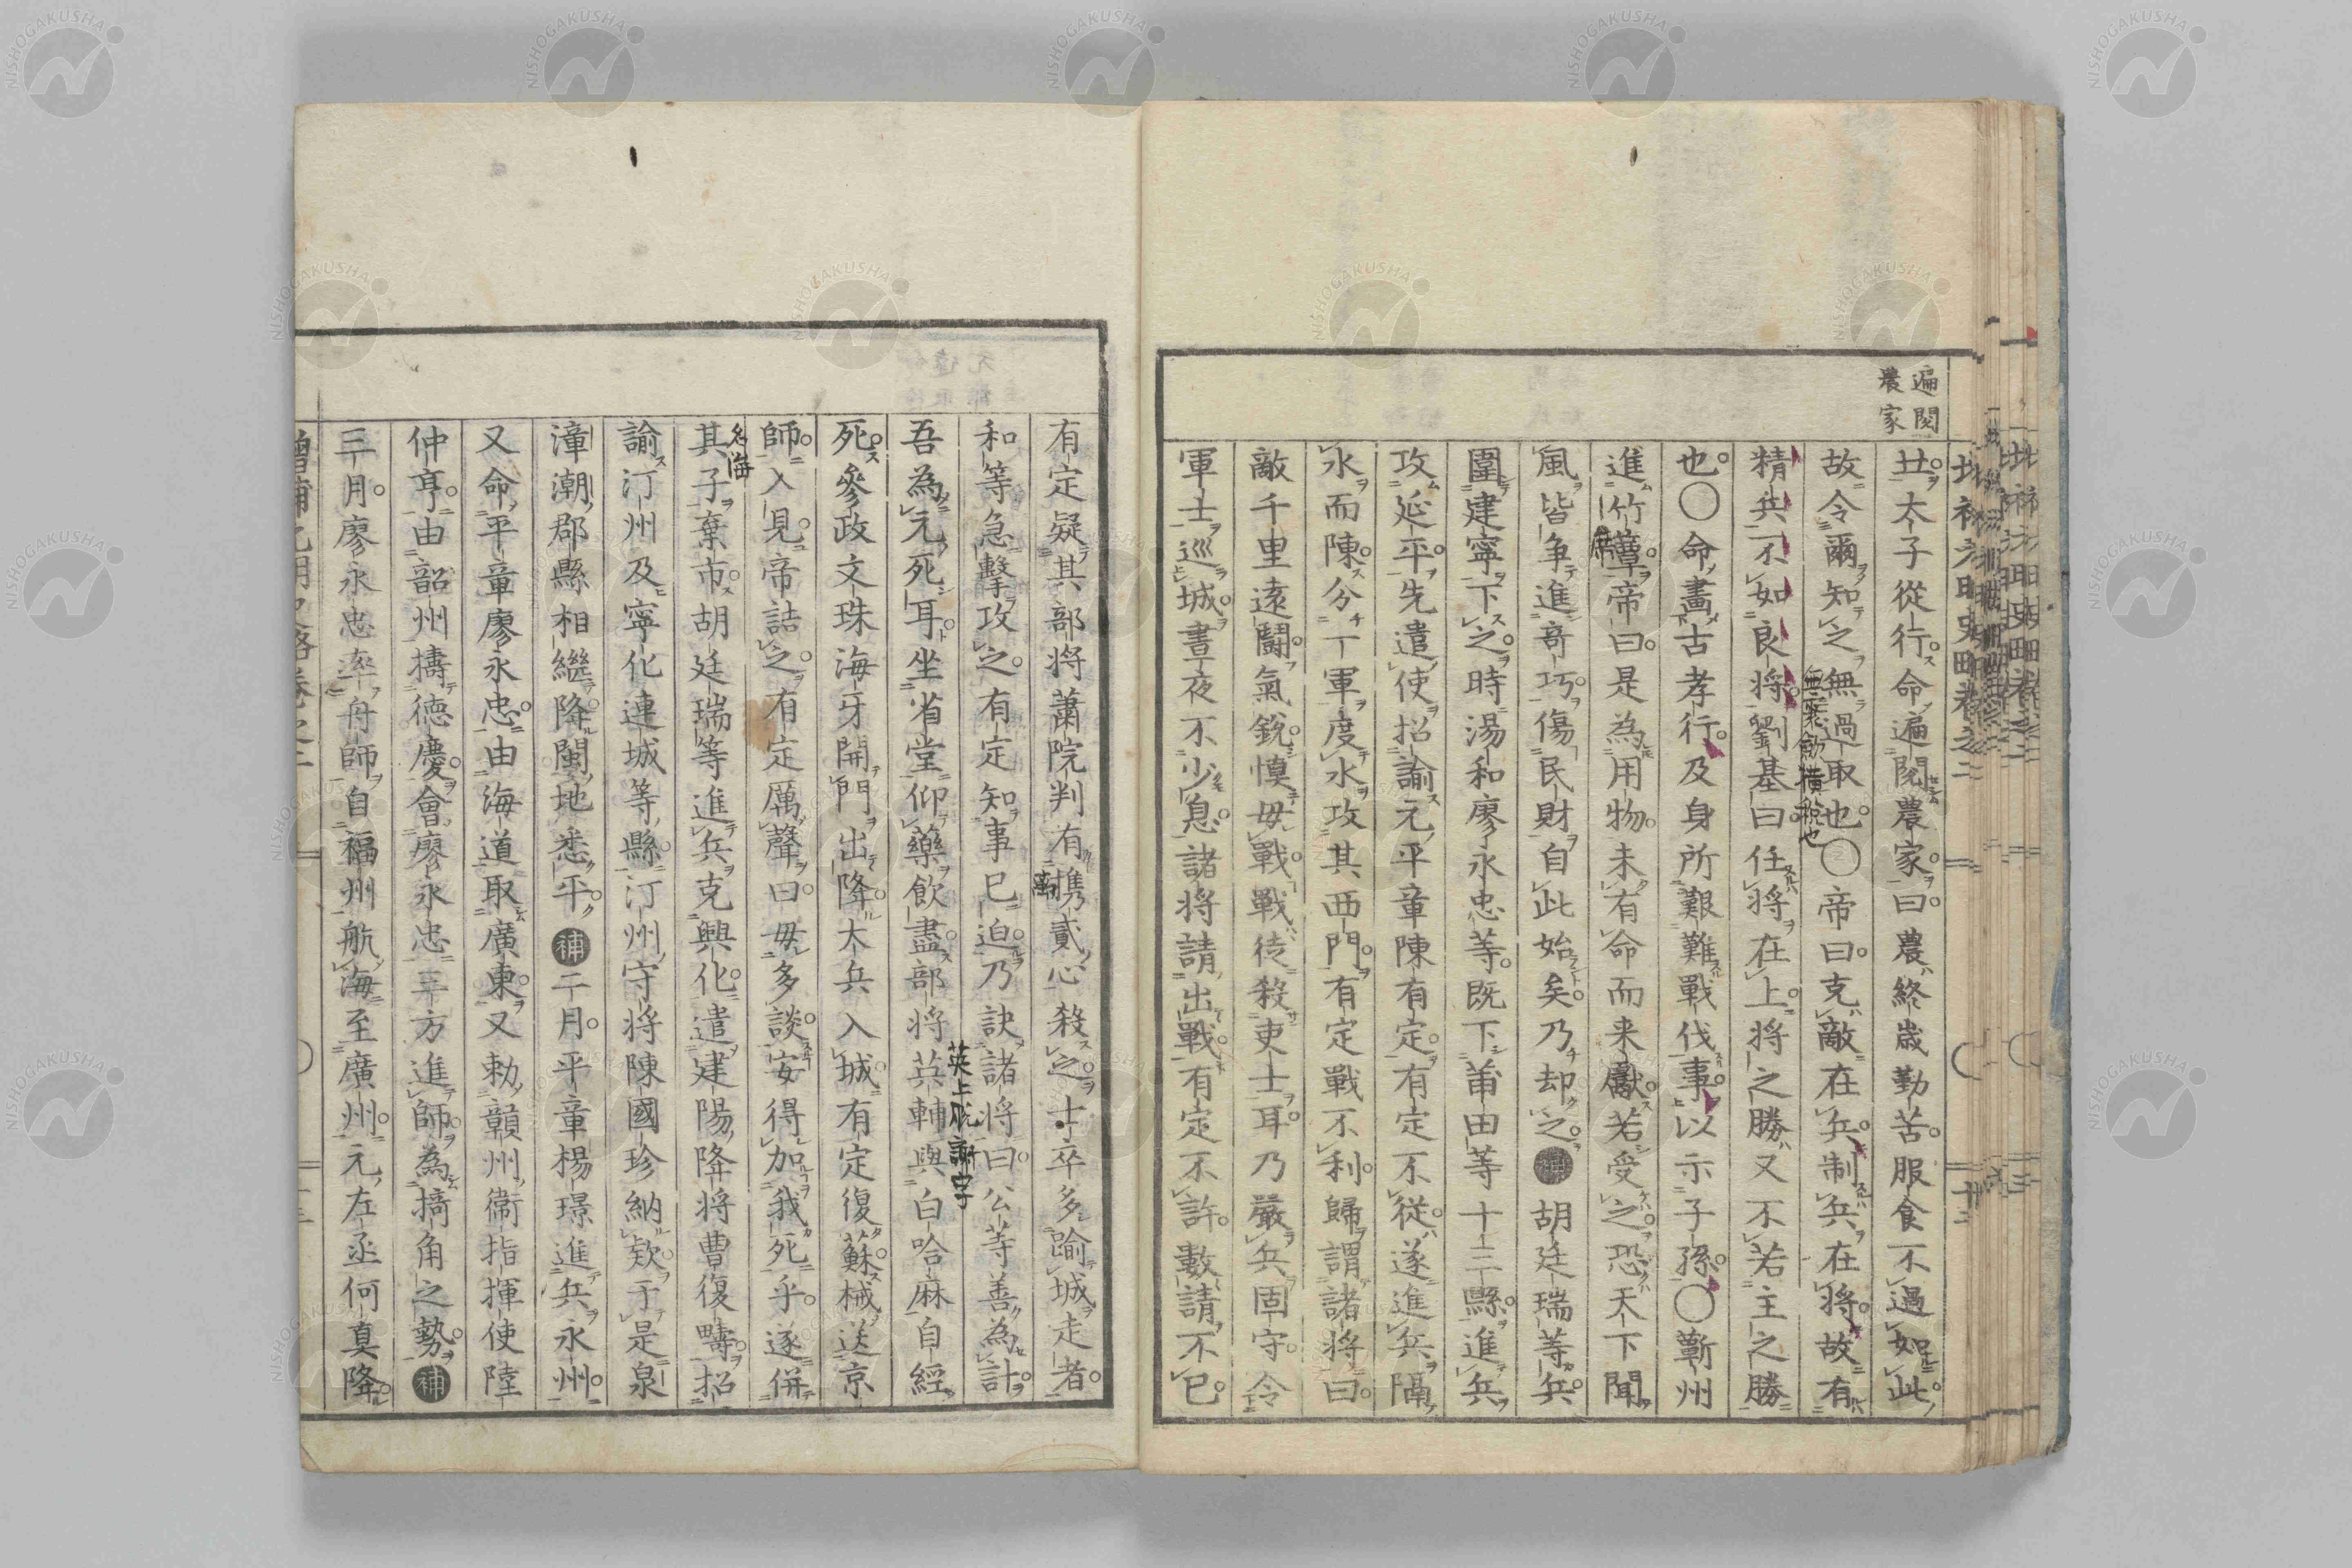 遍閱
農家
丗太子從行命遍閱農家曰農終歲勤苦服食不過如此
故令爾知之無過取也〇帝曰克敵在兵制兵在將故有
精兵不如良將劉基曰任將在上將之勝又不若主之勝
也〇命畫古孝行及身所艱難戰伐事以示子孫〇蘄州
進竹簟帝曰是為用物未有命而来獻若受之恐天下聞
風皆争進竒巧傷民財自此始矣乃却之補胡廷瑞等兵
圍建寧下之時湯和廖永忠等既下莆田等十三縣進兵
攻延平先遣使招諭元平章陳有定有定不從遂進兵隔
水而陳分一軍度水攻其西門有定戰不利歸謂諸将曰
敵千里遠鬪氣銳慎毋戰戰徒殺吏士耳乃嚴兵固守令
軍士巡城晝夜不少息諸将請出戰有定不許數請不已
有定疑其部将蕭院判有携貳心殺之士卒多踰城走者
和等急擊攻之有定知事已迫乃訣諸将曰公等善為計
吾為元死耳坐省堂仰藥飲盡部将英輔與白哈麻自經
死參政文珠海牙開門出降大兵入城有定復蘇械送京
師入見帝詰之有定厲聲曰毋多談安得加我死乎遂併
其子棄市胡廷瑞等進兵克興化遣建陽降将曹復疇招
諭汀州及寧化連城等縣汀州守将陳國珍納欵于是泉
漳潮郡縣相繼降閩地悉平補二月平章楊璟進兵永州
又命平章廖永忠由海道取廣東又勅贛州衞指揮使陸
仲亨由韶州擣徳慶會廖永忠三方進師為掎角之勢補
三月廖永忠率舟師自福州航海至廣州元左丞何真降